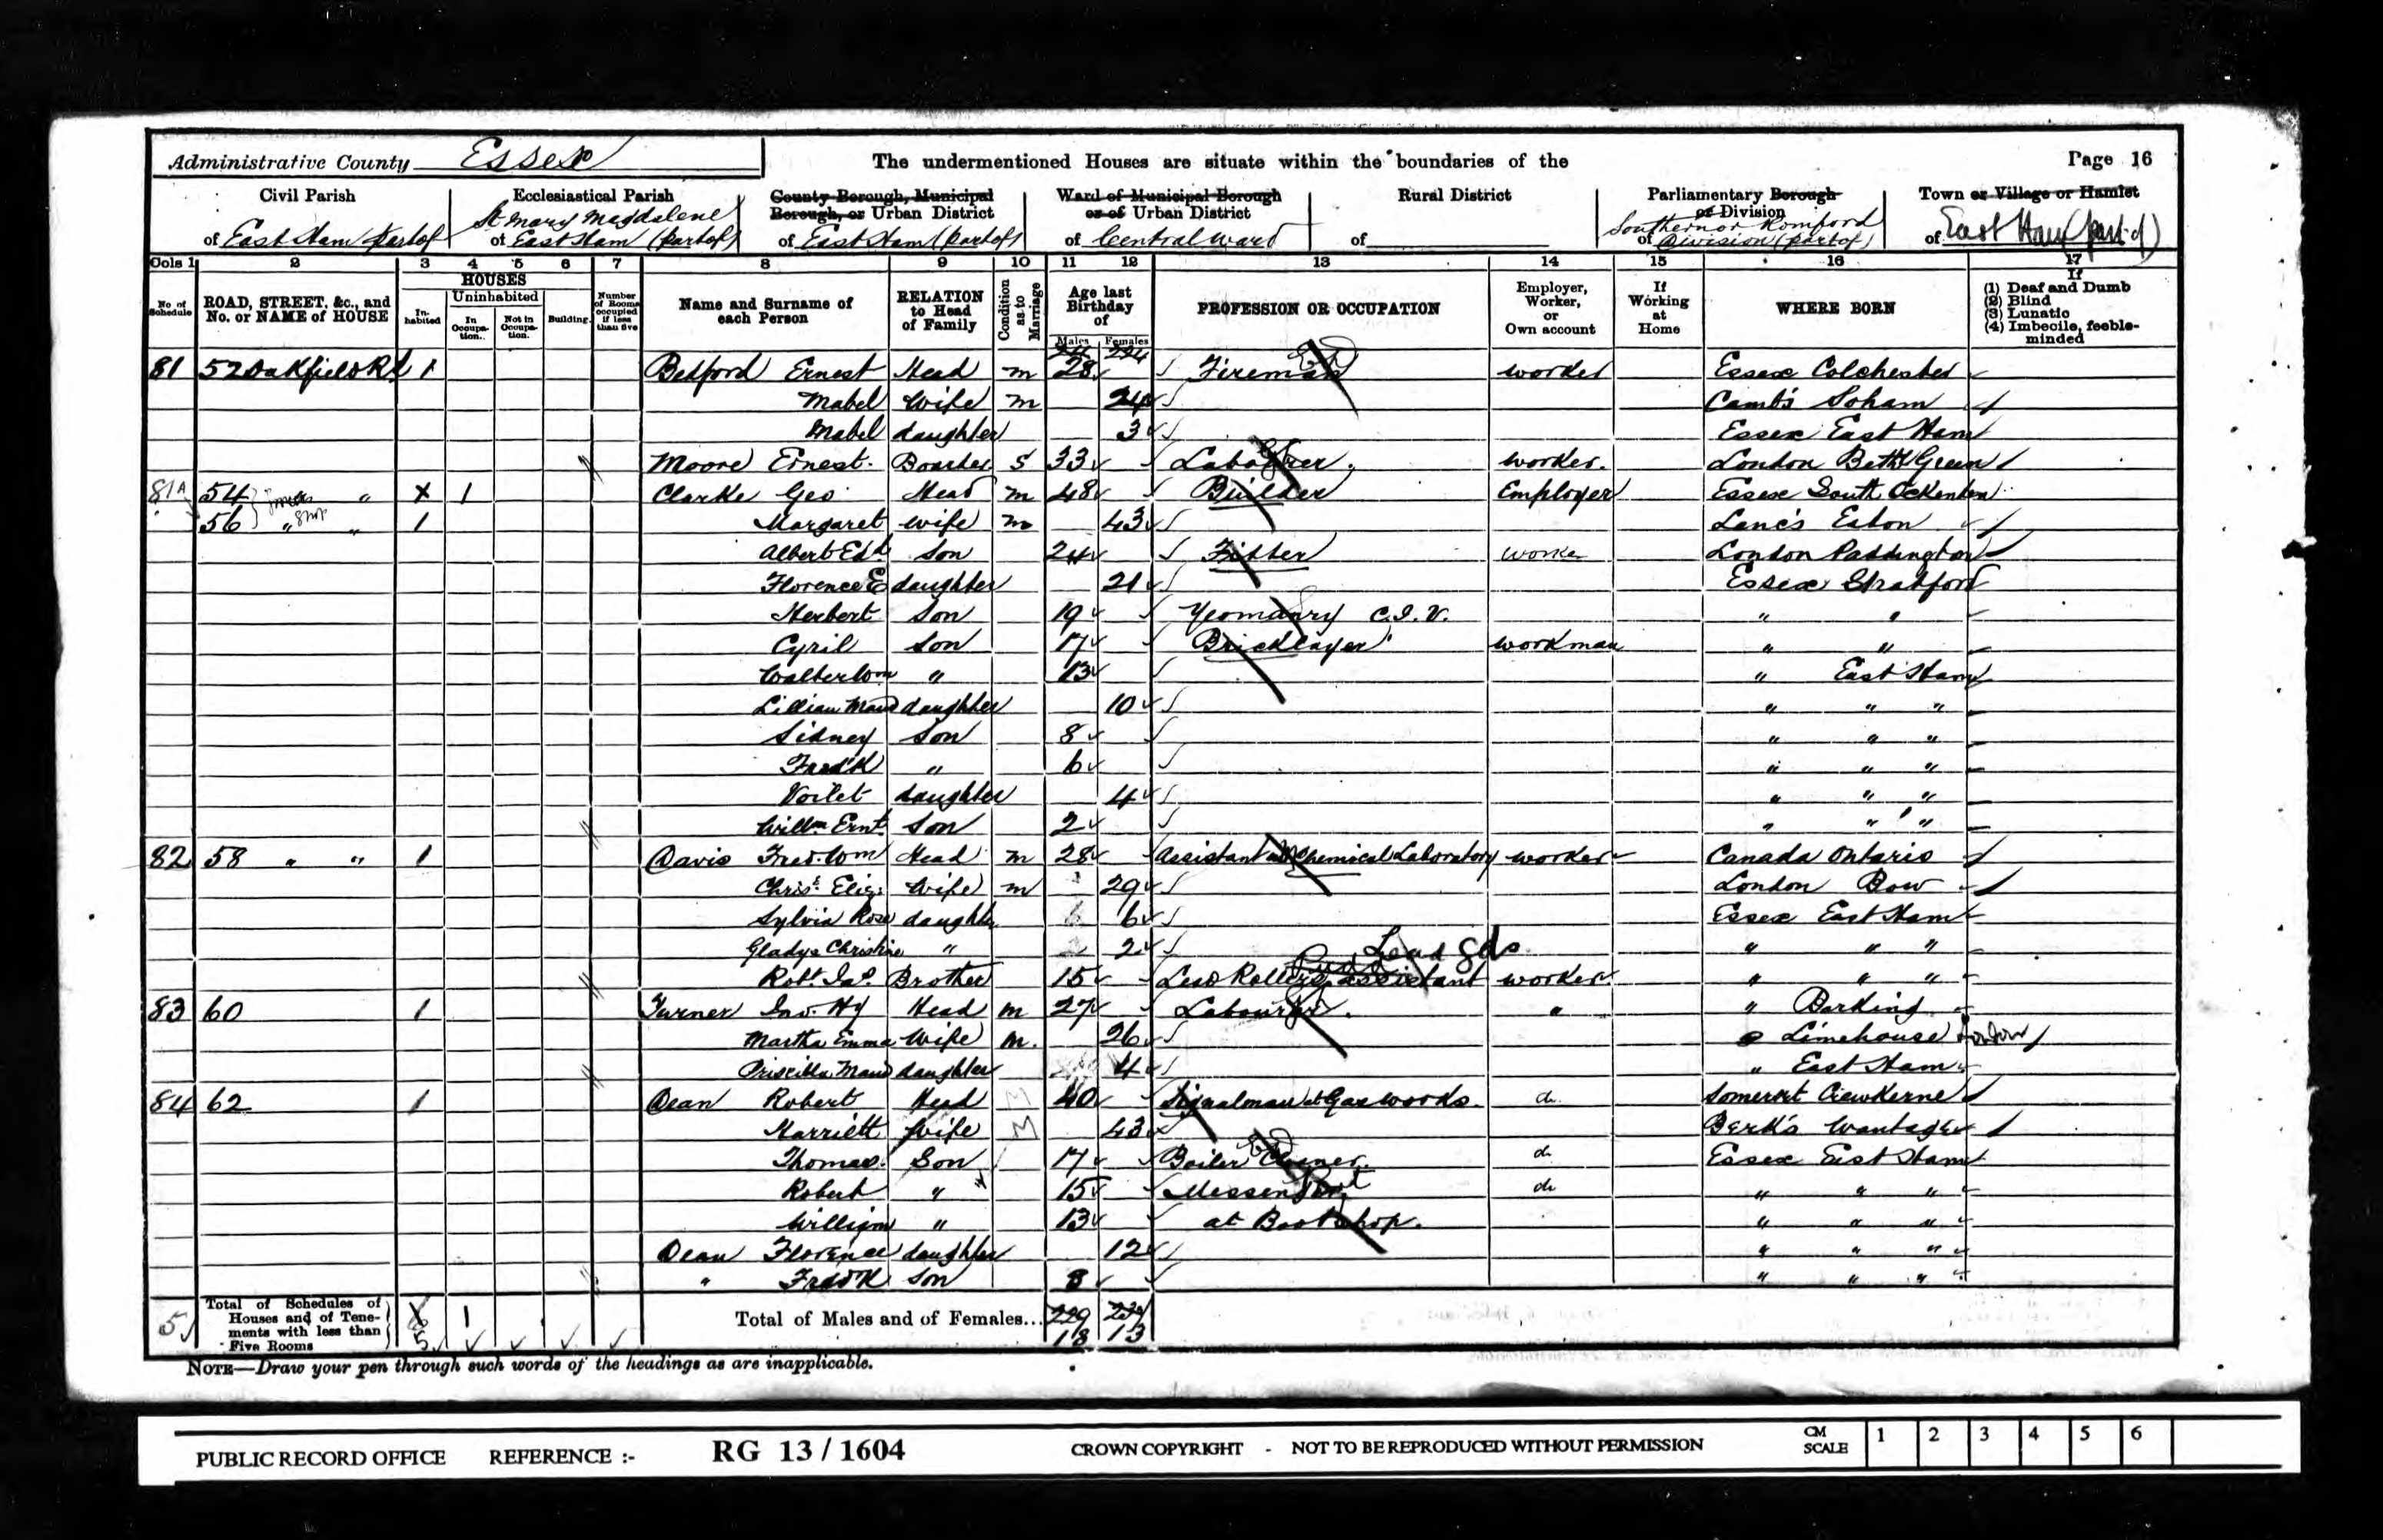 Administrative County Essex
The undermentioned Houses are situate within the boundaries of the
Page 16
Civil Parish
of East Ham (part of
Ecclesiastical Parish
St Mary Magdalene
of East Ham (part of)
County Borough, Municipal
Borough, or Urban District
of East Ham (part of)
Ward of Municipal Borough
or of Urban District
of Central Ward
Rural District
of
Parliamentary Borough
or Division
Southern or Romford
of Division (part of)
Town or Village or Hamlet
of East Ham (part of)
Cols 1 2 3 4 5 6 7 8 9 10 11 12 13 14 15 16 17
No of Schedule
ROAD, STREET, &c., and No. or NAME of HOUSE
HOUSES
In-habited
Uninhabited
In Occupa-tion.
Not in Occupa-tion.
Building.
Number of Rooms occupied if less than five
Name and Surname of each Person
RELATION to Head of Family
Condition as to Marriage
Age last Birthday of
Males Females
PROFESSION OR OCCUPATION
Employer, Worker, or Own account
If Working at Home
WHERE BORN
If
(1) Deaf and Dumb
(2) Blind
(3) Lunatic
(4) Imbecile, feeble-minded
81 52 Oakfield Rd 1 Belford Ernest Head m 28 Fireman worker Essex Colchester
Mabel Wife m 24 Camb's Soham
Mabel daughter 3 Essex East Ham
Moore Ernest. Boarder S 33 Labourer. worker. London Beth Green
81A 54 " " X 1 Clarke Geo Head m 48 Builder Employer Essex South Ockenden
56 " shop " 1 Margaret wife m 43 Lanc's
Albert Edd Son 24 Fitter worke London Paddington
Florence E daughter 21 Essex Stratford
Herbert Son 19 Yeomanry C.I.V. " "
Cyril Son 17 Bricklayer workman " "
Walter Wm " 13 " East Ham
Lillian Maud daughter 10 " " "
Sidney Son 8 " " "
Fredk " 6 " " "
Voilet daughter 4 " " "
Willm Ernt. Son 2 " " "
82 58 " " 1 Davis Fred. Wm Head m 28 Assistant Chemical Laboratory worker Canada Ontario
Chris. Eliz: Wife m 29 London Bow
Sylvia Rose daughter 6 Essex East Ham
Gladys Christine " 2 " " "
Lead Gds
Robt. Jas. Brother 15 Lead Rollers assistant worker " " "
83 60 1 Turner Jno. Hy Head m 27 Labourer. " " Barking
Martha Emma Wife m. 26 Limehouse London
Priscilla Maud daughter 4 " East Ham
84 62 1 Dean Robert Head M 40 Signalman at Gas works. do Somerset Crewkerne
Harriett Wife M 43 Berk's Wantage
Thomas. Son 17 Boiler Cleaner. do Essex East Ham
Robert " 15 Messenger do " " "
William " 13 at Bootshop. " " "
Dean Florence daughter 12 " " "
" Fredk Son 8 " " "
5 Total of Schedules of Houses and of Tene-ments with less than Five Rooms 5 1
Total of Males and of Females... 18 13
NOTE—Draw your pen through such words of the headings as are inapplicable.
PUBLIC RECORD OFFICE REFERENCE :- RG 13 / 1604 CROWN COPYRIGHT - NOT TO BE REPRODUCED WITHOUT PERMISSION CM SCALE 1 2 3 4 5 6